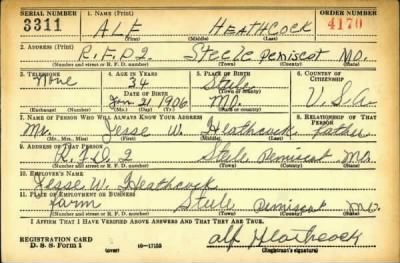 SERIAL NUMBER 1. NAME (Print) ORDER NUMBER
3311 ALF HEATHCOCK 4170
(First) (Middle) (Last)
2. ADDRESS (Print)
R.F.D.2 Steele Pemiscot Mo.
(Number and street or R. F. D. number) (Town) (County) (State)
3. TELEPHONE 4. AGE IN YEARS 5. PLACE OF BIRTH 6. COUNTRY OF CITIZENSHIP
None 34 Steele
DATE OF BIRTH (Town or county)
Jan. 21 1906 Mo. U.S.A.
(Exchange) (Number) (Mo.) (Day) (Yr.) (State or country)
7. NAME OF PERSON WHO WILL ALWAYS KNOW YOUR ADDRESS 8. RELATIONSHIP OF THAT PERSON
Mr. Jesse W. Heathcock Father
(Mr., Mrs., Miss) (First) (Middle) (Last)
9. ADDRESS OF THAT PERSON
R.F.D. 2 Steele Pemiscot Mo.
(Number and street or R. F. D. number) (Town) (County) (State)
10. EMPLOYER'S NAME
Jesse W. Heathcock
11. PLACE OF EMPLOYMENT OR BUSINESS
Farm Steele Pemiscot Mo.
(Number and street or R. F. D. number) (Town) (County) (State)
I AFFIRM THAT I HAVE VERIFIED ABOVE ANSWERS AND THAT THEY ARE TRUE.
REGISTRATION CARD
D. S. S. Form 1 (over) 16—17105 Alf Heathcock
(Registrant's signature)